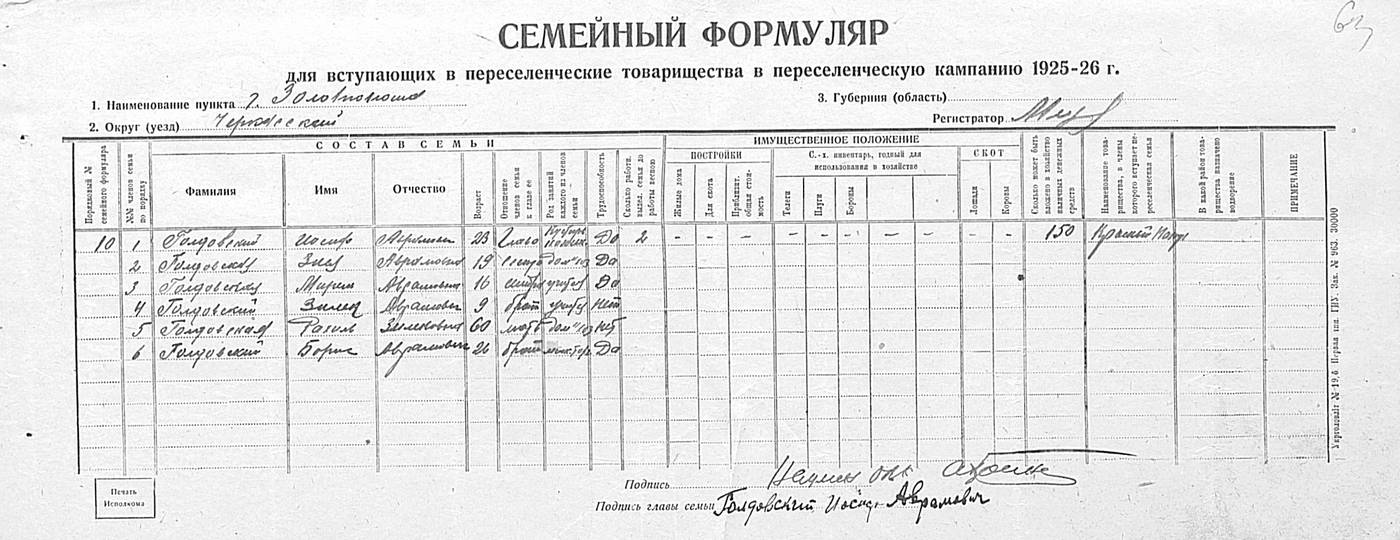 63
СЕМЕЙНЫЙ ФОРМУЛЯР
для вступающих в переселенческие товарищества в переселенческую кампанию 1925-26 г.
1. Наименование пункта г. Золотоноша
3. Губерния (область)
2. Округ (уезд) Черкасский
Регистратор
Порядковый № семейного формуляра
№№ членов семьи по порядку
СОСТАВ СЕМЬИ
Фамилия
Имя
Отчество
Возраст
Отношение членов семьи к главе ее
Род занятий каждого из членов семьи
Трудоспособность
Сколько работн. выдел. семья до работы весною
ИМУЩЕСТВЕННОЕ ПОЛОЖЕНИЕ
ПОСТРОЙКИ
Жилые дома
Для скота
Приблизит. общая стоимость
С.-х. инвентарь, годный для использования в хозяйстве
Телеги
Плуги
Бороны
СКОТ
Лошади
Коровы
Сколько может быть вложено в хозяйство наличных денежных средств
Наименование товарищества, в члены которого вступает переселенческая семья
В какой район товарищества назначено водворение
ПРИМЕЧАНИЕ
10 1 Голдовский Иосиф Аврамович 23 глава Да 2 – – – – – – – – – – 150 Красный
2 Голдовская Зися Аврамовна 19 сестра дом хоз Да
3 Голдовская Мирем Аврамовна 16 сестра учится Да
4 Голдовский Зилек Аврамович 9 брат учится Нет
5 Голдовская Рахиль Зилековна 60 мать дом хоз Нет
6 Голдовский Борис Аврамович 26 брат Да
Печать Исполкома
Подпись
Подпись главы семьи Голдовский Иосиф Аврамович
Укрголовліт № 19,6 Первая тип. ГИУ. Зак. № 963. 30000